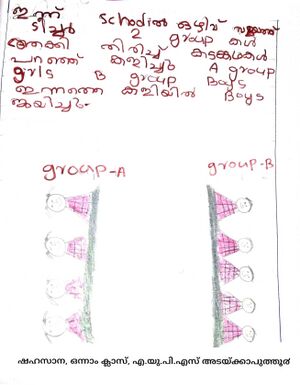 ഇന്ന് school ൽ ഒഴിവ് സമയത്ത്
ടീച്ചർ 2 group കൾ
ആക്കി തിരിച്ച് കടങ്കഥകൾ
പറഞ്ഞ് കളിച്ചു. A group
girls B group Boys
ഇന്നത്തെ കളിയിൽ Boys
ജയിച്ചു.
group-A
group-B
ഷഹസാന, ഒന്നാം ക്ലാസ്, എ.യു.പി.എസ് അടയ്ക്കാപുത്തൂർ